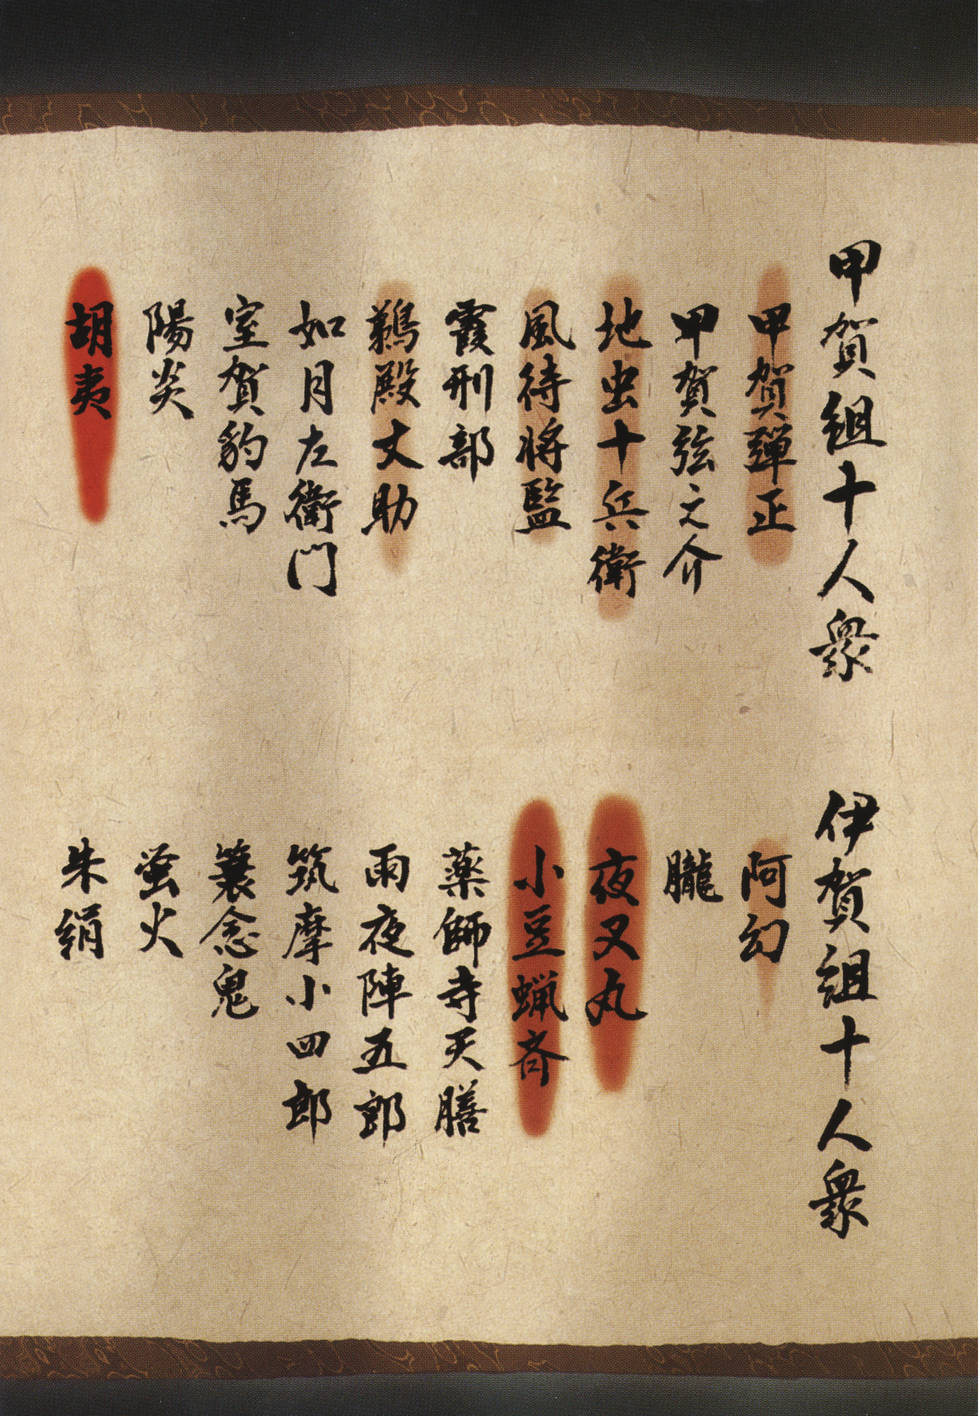 甲賀組十人衆
甲賀彈正
甲賀弦之介
地虫十兵衛
風待将監
霞刑部
鵜殿丈助
如月左衛門
室賀豹馬
陽炎
胡夷
伊賀組十人衆
阿幻
朧
夜叉丸
小豆蝋斉
薬師寺天膳
雨夜陣五郎
筑摩小四郎
蓑念鬼
蛍火
朱絹